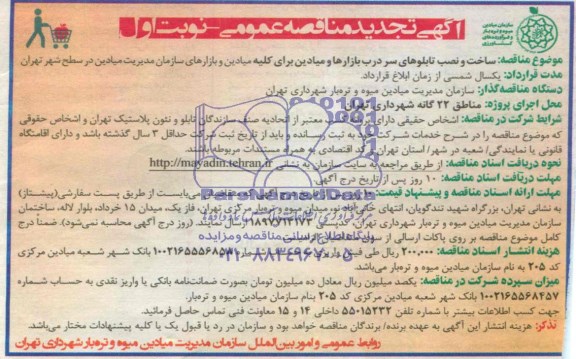 آگهی تجدید مناقصه عمومی - نوبت اول
سازمان میادین
میوه و تره‌بار
و فرآورده‌های
کشاورزی
موضوع مناقصه: ساخت و نصب تابلوهای سر درب بازارها و میادین برای کلیه میادین و بازارهای سازمان مدیریت میادین در سطح شهر تهران
مدت قرارداد: یکسال شمسی از زمان ابلاغ قرارداد.
دستگاه مناقصه‌گذار: سازمان مدیریت میادین میوه و تره‌بار شهرداری تهران
محل اجرای پروژه: مناطق ۲۲ گانه شهرداری تهران
شرایط شرکت در مناقصه: اشخاص حقیقی دارای معتبر از اتحادیه صنف سازندگان تابلو و نئون پلاستیک تهران و اشخاص حقوقی
که موضوع مناقصه را در شرح خدمات شرکت خود به ثبت رسانده و باید از تاریخ ثبت شرکت حداقل ۳ سال گذشته باشد و دارای اقامتگاه
قانونی یا نمایندگی/ شعبه در شهر/ استان تهران و کد اقتصادی به همراه مستندات مربوطه باشند.
نحوه دریافت اسناد مناقصه: از طریق مراجعه به سایت سازمان به نشانی http://mayadin.tehran.ir
مهلت دریافت اسناد مناقصه: ۱۰ روز پس از تاریخ درج آگهی.
مهلت ارائه اسناد مناقصه و پیشنهاد قیمت: می‌بایست از طریق پست سفارشی (پیشتاز)
به نشانی تهران، بزرگراه شهید تندگویان، انتهای میدان میوه و تره‌بار مرکزی تهران، فاز یک، میدان ۱۵ خرداد، بلوار لاله، ساختمان
سازمان مدیریت میادین میوه و تره‌بار شهرداری تهران، ارسال نمایند. (روز درج آگهی محاسبه نمی‌شود). ضمناً درج
کامل موضوع مناقصه بر روی پاکات ارسالی از سوی
هزینه انتشار اسناد مناقصه: ۲۰۰,۰۰۰ ریال طی فیش واریزی ۱۰۰۲۱۶۵۵۵۶۸۵۳۱ بانک شهر شعبه میادین مرکزی
کد ۲۰۵ به نام سازمان مدیریت میادین میوه و تره‌بار می‌باشد.
میزان سپرده شرکت در مناقصه: یکصد میلیون ریال معادل ده میلیون تومان بصورت ضمانت‌نامه بانکی یا واریز نقدی به حساب شماره
۱۰۰۲۱۶۵۵۶۸۴۵۷ بانک شهر شعبه میادین مرکزی کد ۲۰۵ بنام سازمان مدیریت میادین میوه و تره‌بار.
جهت کسب اطلاعات بیشتر با شماره تلفن ۵۵۰۱۵۲۳۲ داخلی ۱۴ و ۱۵ معاونت فنی تماس حاصل فرمائید.
تذکر: هزینه انتشار این آگهی به عهده برنده/ برندگان مناقصه خواهد بود و سازمان در رد یا قبول یک یا کلیه پیشنهادات مختار می‌باشد.
روابط عمومی و امور بین‌الملل سازمان مدیریت میادین میوه و تره‌بار شهرداری تهران
ParsNamadData
پایگاه اطلاع رسانی مناقصه و مزایده
۰۲۱-۸۸۳۴۹۶۷۰-۵